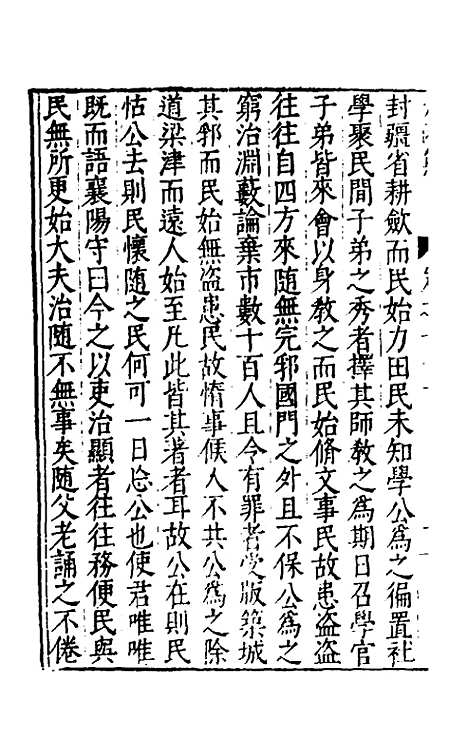 封疆省耕斂而民始力田民未知學公為之徧置社
學聚民間子弟之秀者擇其師教之為期日召學官
子弟皆來會以身教之而民始脩文事民故患盜盜
往往自四方來隨無完郛國門之外且不保公為之
窮治淵藪論棄市數十百人且令有罪者受版築城
其郛而民始無盜患民故惰事候人不共公為之除
道梁津而遠人始至凡此皆其著者耳故公在則民
怙公去則民懷隨之民何可一日忘公也使君唯唯
既而語襄陽守曰今之以吏治顯者往往務便民與
民無所更始大夫治隨不無事矣隨父老誦之不倦